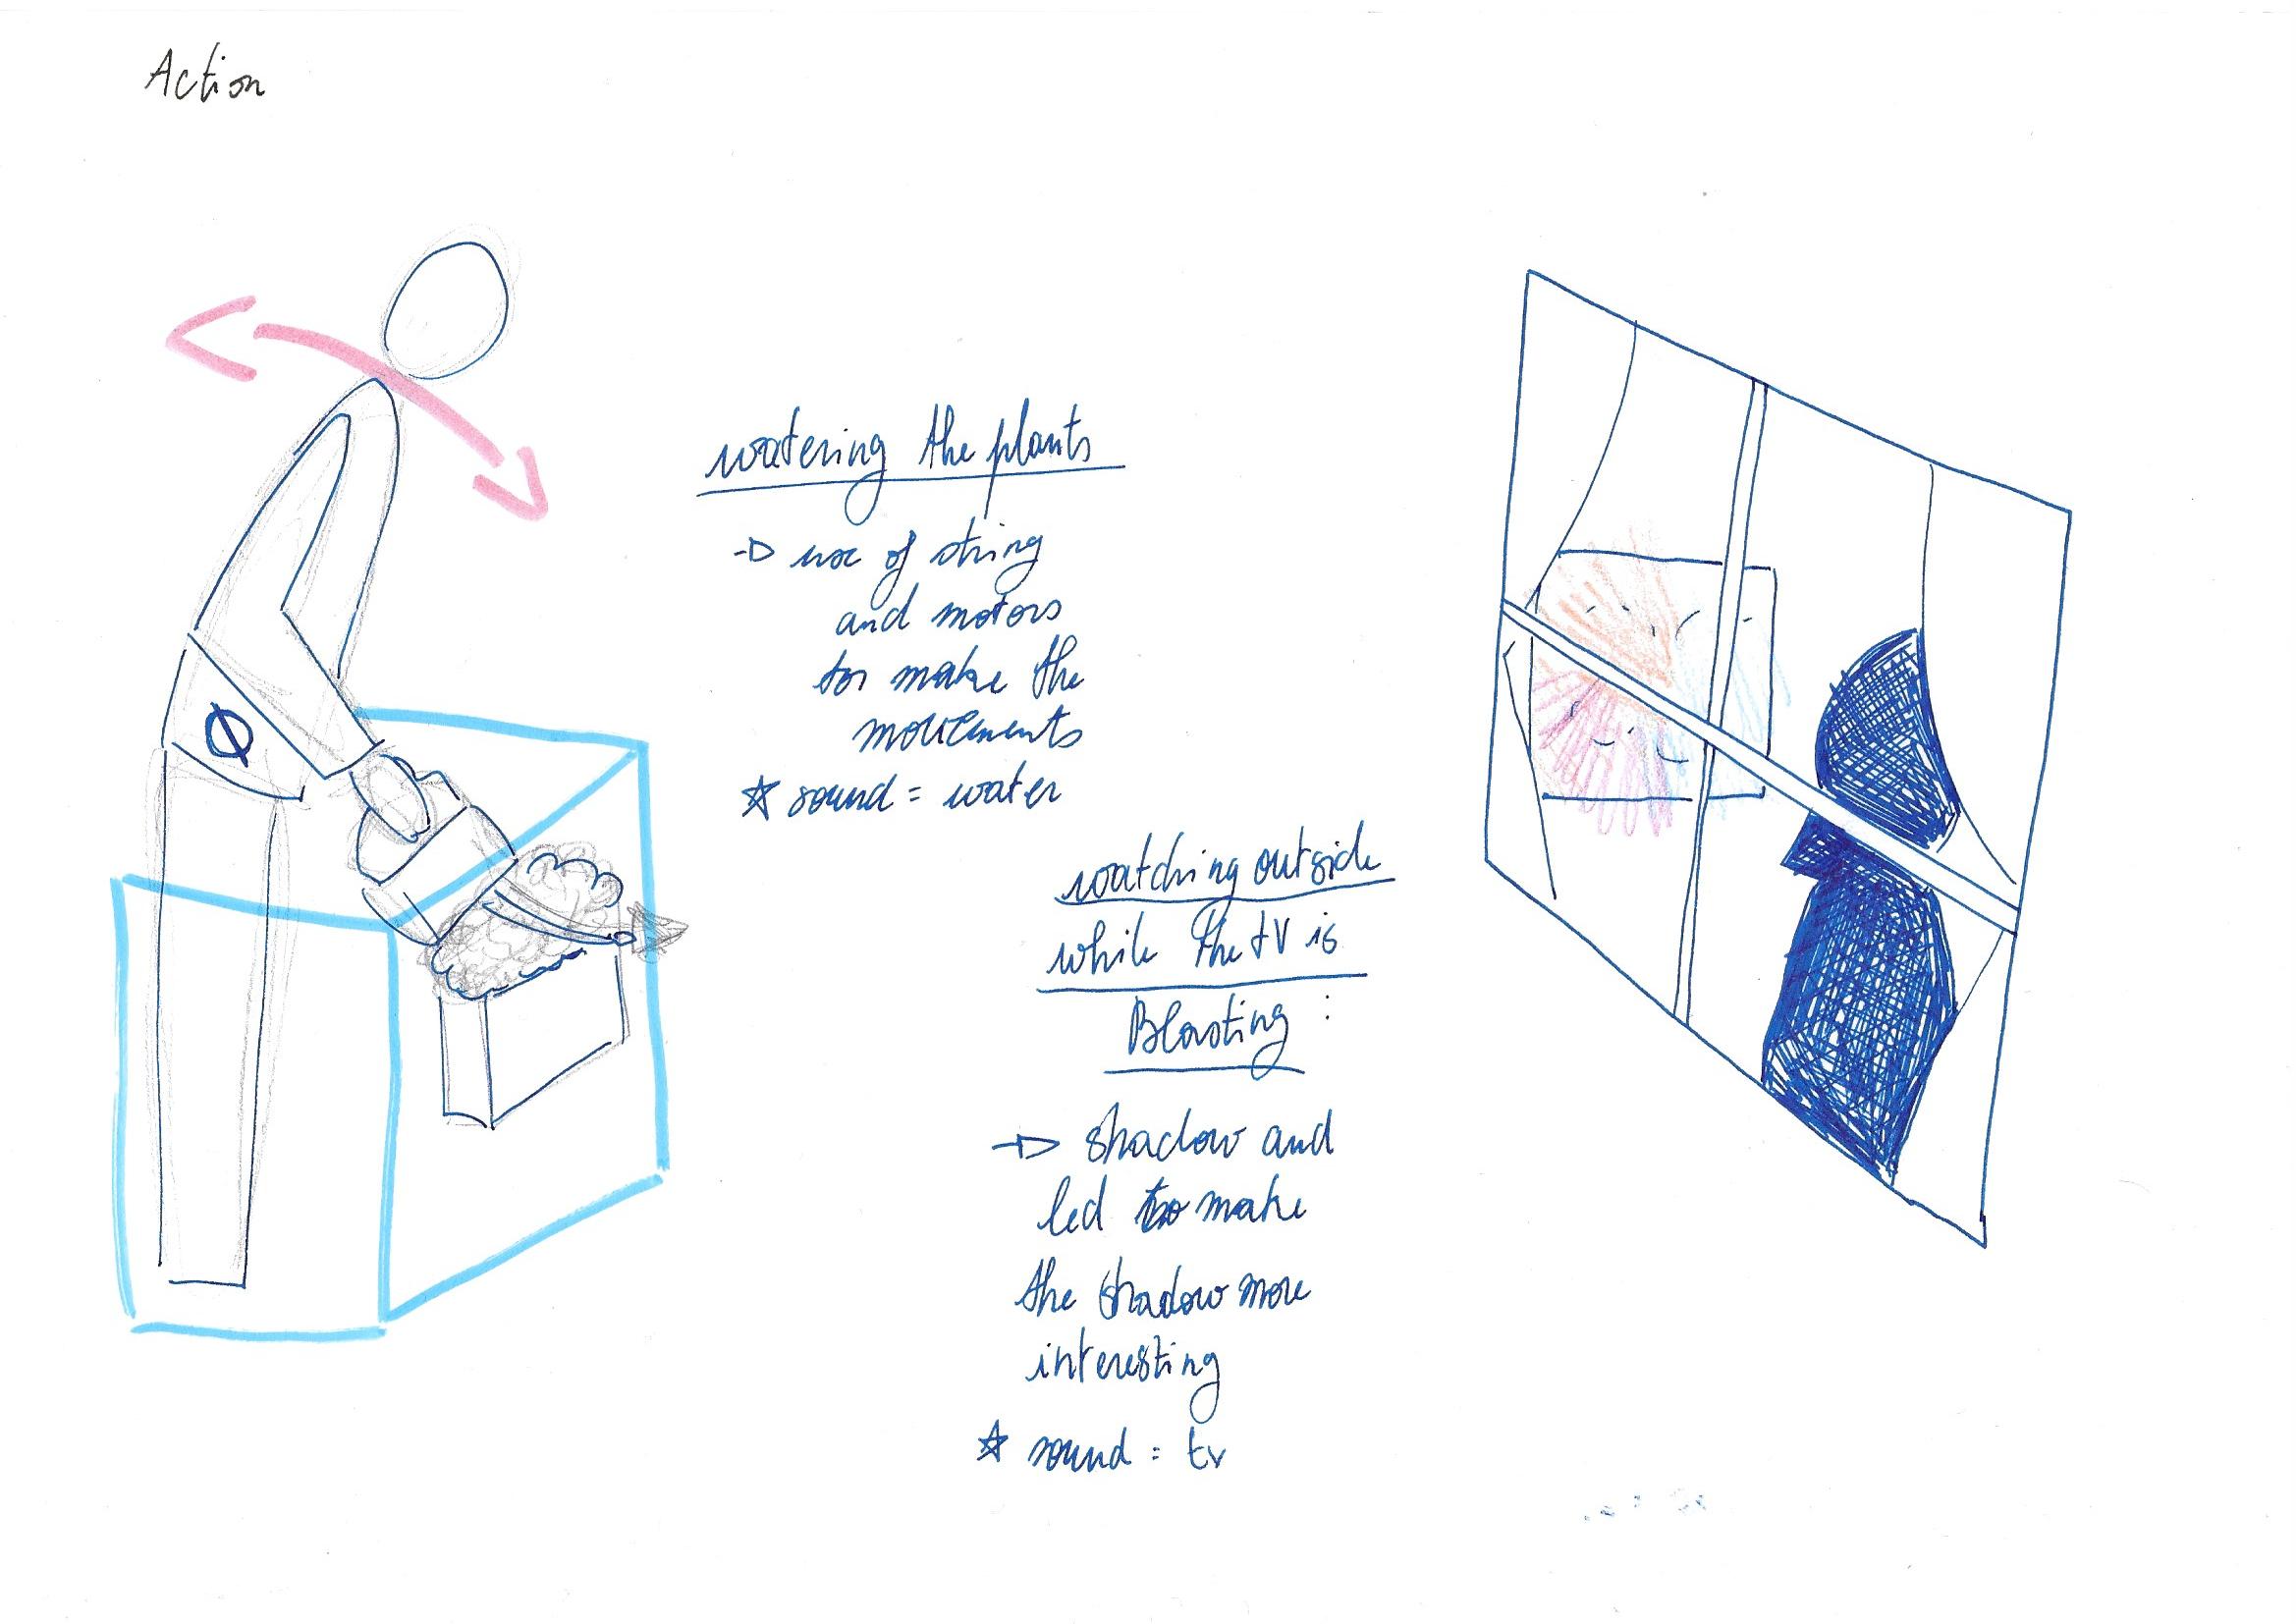 Action
watering the plants
→ use of string
and motors
to make the
movements
☆ sound = water
watching outside
while the tV is
Blasting :
→ shadow and
led to make
the shadow more
interesting
☆ sound = tv